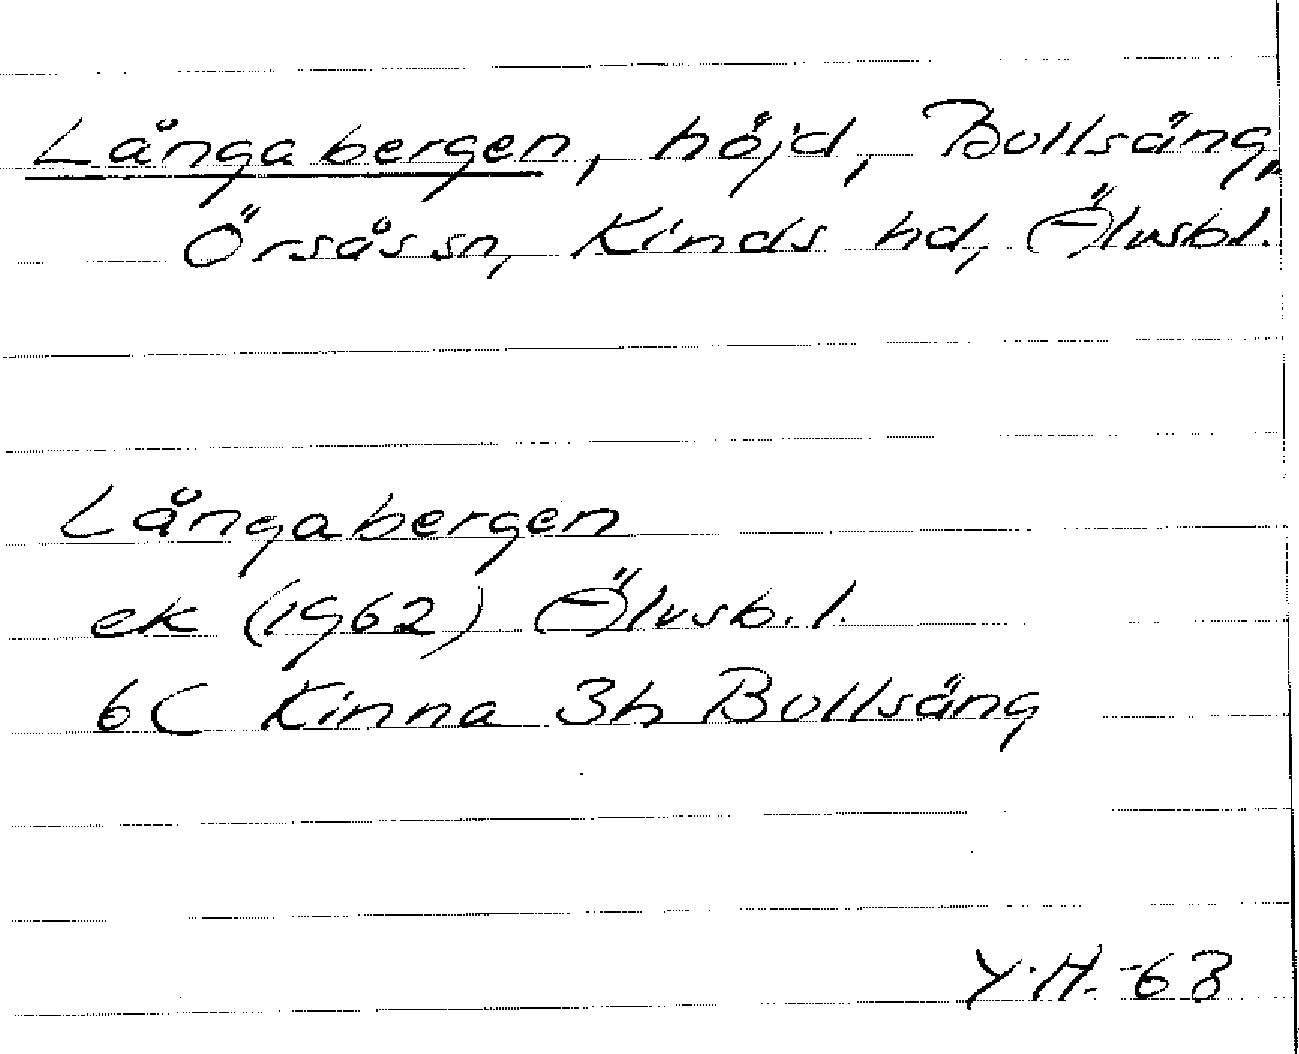 Långabergen, höjd, Bullsäng,
Örsås sn, Kinds hd, Älvsbl.
Långabergen
ek (1962) Älvsb. l.
6C Kinna 3h Bullsäng
Y.H. -63